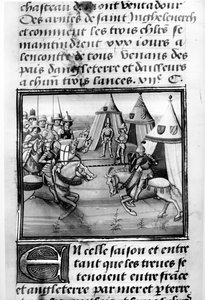 chasteau de mont ventadour
Des armes de saint Inghelverch
et comment les trois chlrs se
maintindrent xxx iours a
lencontre de tous venans du
pais dangleterre et dailleurs
a chun trois lances. xij. C.
En celle saison et entre
tant que les trieues se
tenoient entre frāce
et angleterre par mer et p terre